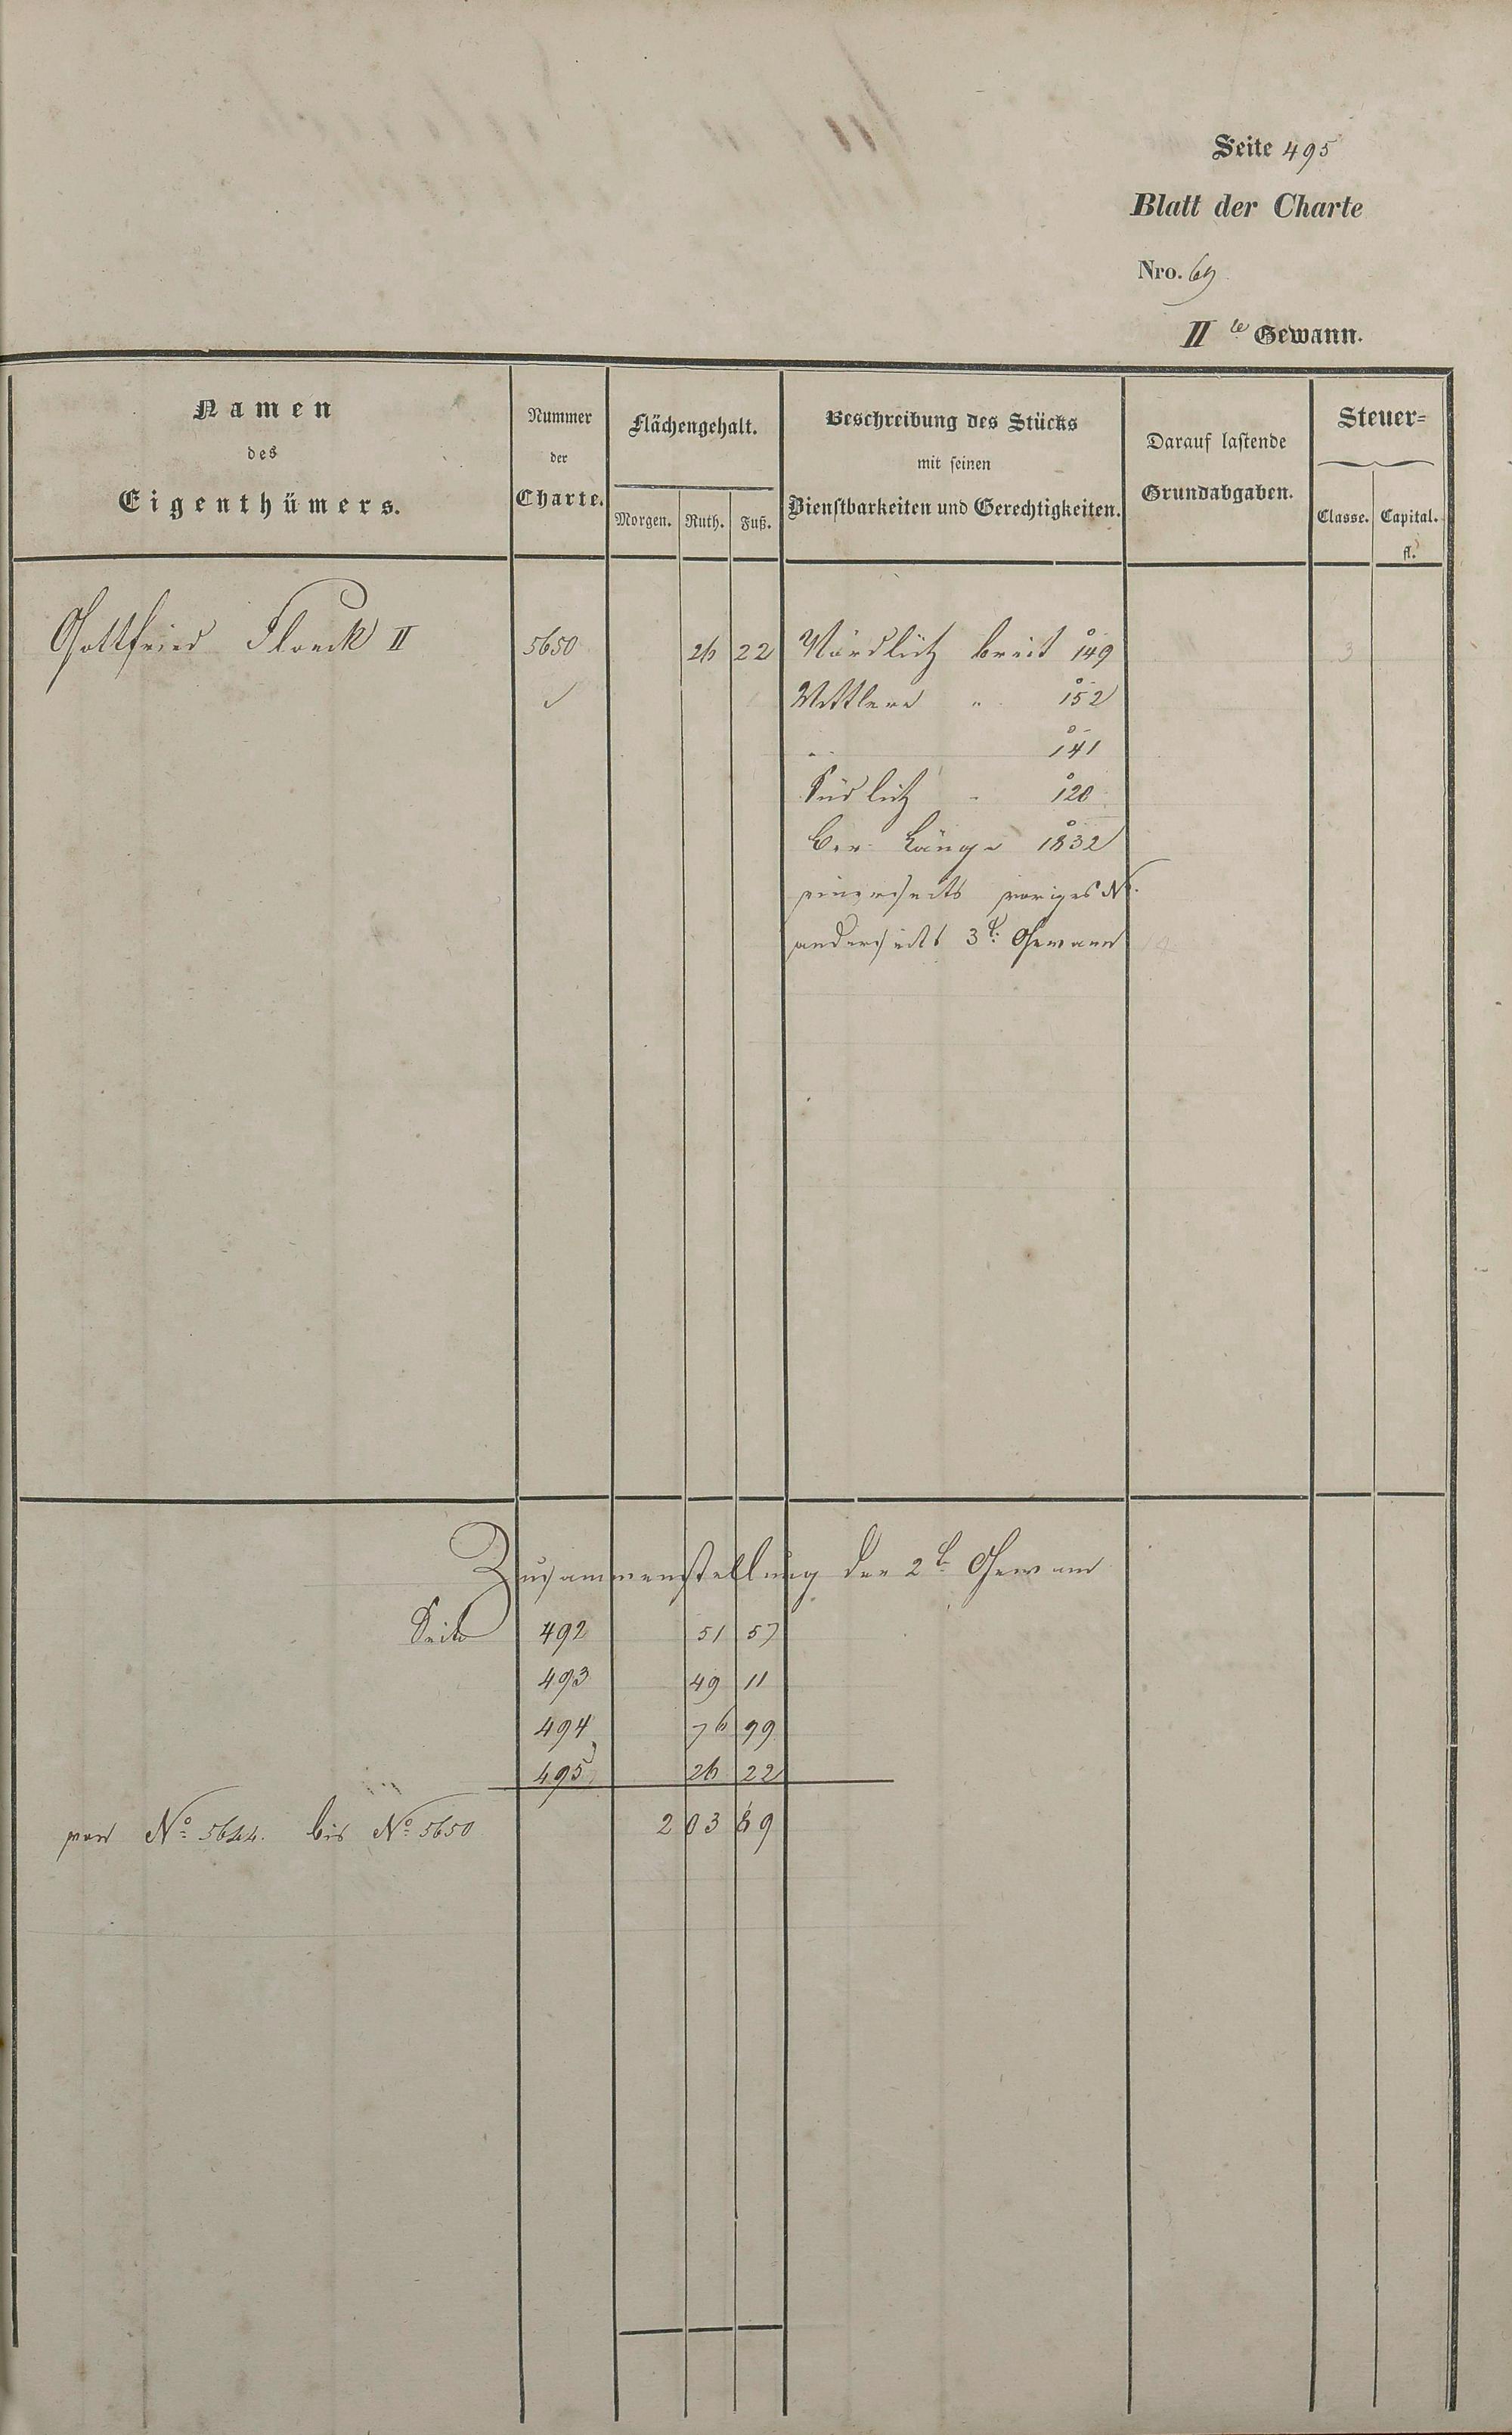 Seite 495
Blatt der Charte
Nro. 69
II te Gewann.
Namen des Eigenthümers.
Nummer der Charte.
Flächengehalt.
Morgen. Ruth. Fuß.
Beschreibung des Stücks mit seinen Dienstbarkeiten und Gerechtigkeiten.
Darauf lastende Grundabgaben.
Steuer-
Classe. Capital.
fl.
Gottfried Floeck II 5650 26 22 Nördlich breit 149 3
Mittlere " 152
" 141
Südlich " 120
Ber. Länge 1832
einerseits voriges N.
anderseits 3t. Gewann
Zusammenstellung der 2t. Gewann
Seite 492 51 57
493 49 11
494 76 99
495 26 22
von No. 5644. bis No. 5650 203 89